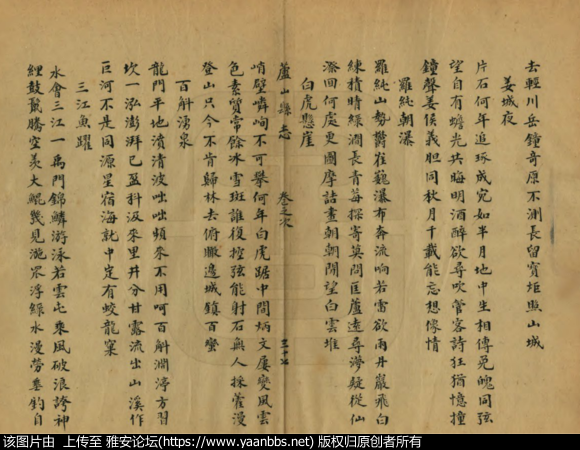 去輕川岳鐘奇原不測長留寶炬照山城
姜城夜
片石何年追琢成宛如半月地中生相傳兔魄同弦
望自有蟾光共晦明酒醉欲尋吹管客詩狂猶憶撞
鐘聲姜侯義胆同秋月千載能忘想像情
羅純朝瀑
羅純山勢欝崔巍瀑布奔流响若雷欲雨丹巖飛白
練積晴綠澗長青莓探寄莫問匡蘆遠尋渺疑從仙
滁回何處更圖摩詰畫朝朝閒望白雲堆
白虎懸崖
蘆山縣志 卷之次 三十七
峭壁嶙峋不可攀何年白虎踞中間炳文屢變風雲
色素質常餘冰雪斑誰復控弦能射石無人採藿漫
登山只今不肯歸林去俯瞰邉城鎮百蠻
百斛湧泉
龍門平地濆清波咄咄頻來不用呵百斛澗渟方習
坎一泓澎湃已盈科汲來里井分甘露流出山溪作
巨河不是同源星宿海就中定有蛟龍窠
三江魚躍
水會三江一禹門錦鱗游泳若雲屯乘風破浪誇神
鯉鼓鬣騰空羡大鯤幾見施罛浮綠水漫勞垂釣自
该图片由 上传至 雅安论坛(https://www.yaanbbs.net) 版权归原创者所有